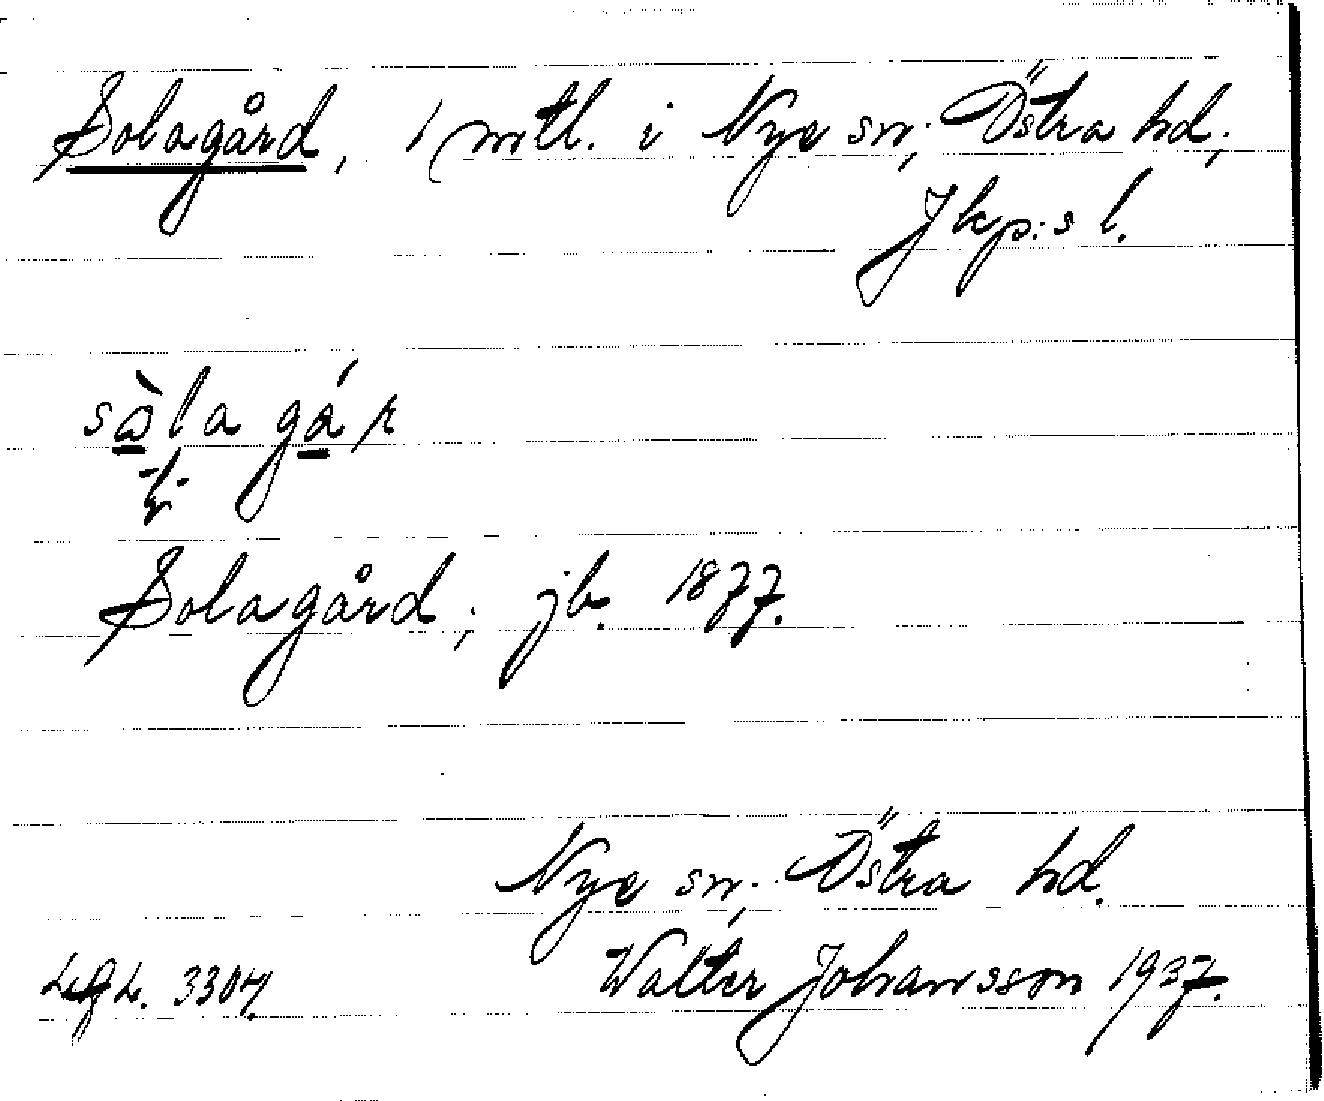 Solagård, 1 mtl. i Nye sn, Östra hd,
Jkp:s l.
sàla gár
Solagård, jb. 1877.
Nye sn, Östra hd.
Walter Johansson 1937.
3304.